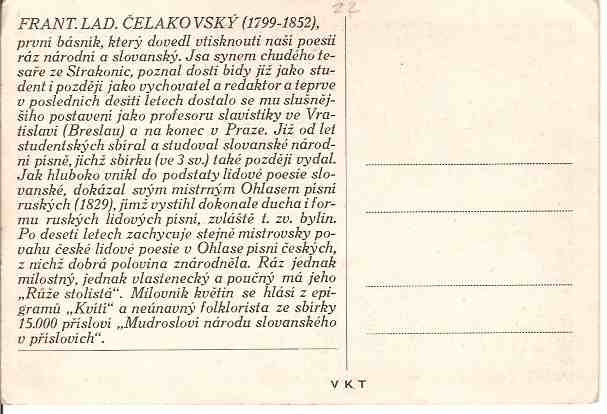 22
FRANT. LAD. ČELAKOVSKÝ (1799-1852),
první básník, který dovedl vtisknouti naší poesii
ráz národní a slovanský. Jsa synem chudého te-
saře ze Strakonic, poznal dosti bídy již jako stu-
dent i později jako vychovatel a redaktor a teprve
v posledních desíti letech dostalo se mu slušněj-
šího postavení jako profesoru slavistiky ve Vra-
tislavi (Breslau) a na konec v Praze. Již od let
studentských sbíral a studoval slovanské národ-
ní písně, jichž sbírku (ve 3 sv.) také později vydal.
Jak hluboko vnikl do podstaty lidové poesie slo-
vanské, dokázal svým mistrným Ohlasem písní
ruských (1829), jímž vystihl dokonale ducha i for-
mu ruských lidových písní, zvláště t. zv. bylin.
Po deseti letech zachycuje stejně mistrovsky po-
vahu české lidové poesie v Ohlase písní českých,
z nichž dobrá polovina znárodněla. Ráz jednak
milostný, jednak vlastenecký a poučný má jeho
„Růže stolistá“. Milovník květin se hlásí z epi-
gramů „Kvítí“ a neúnavný folklorista ze sbírky
15.000 přísloví „Mudrosloví národu slovanského
v příslovích“.
VKT